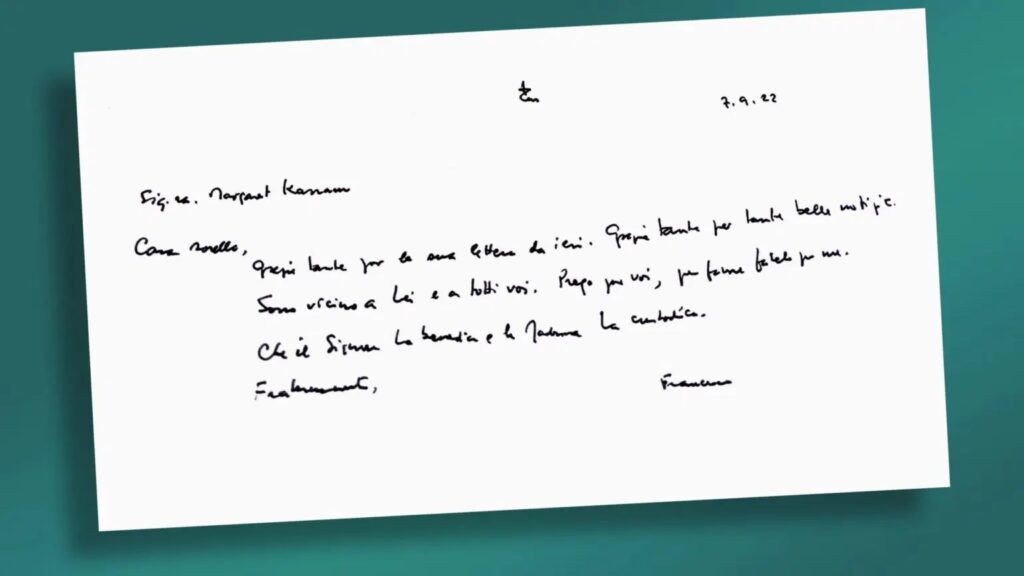 7.9.22
Sig.ra. Margaret Karram
Cara sorella,
Grazie tante per la sua lettera da ieri. Grazie tante per tante belle notizie.
Sono vicino a Lei e a tutti voi. Prego per voi, per favore fatelo per me.
Che il Signore La benedica e la Madonna La custodisca.
Fraternamente, Francesco